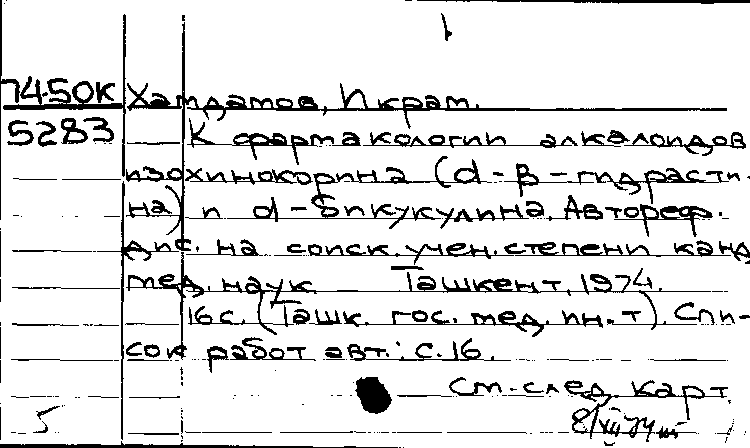 7450К Хамдамов, Икрам.
5283 К фармакологии алкалоидов
изохинокорина (d-β-гидрасти-
на) и d-бикукулина. Автореф.
дис. на соиск. учен. степени канд.
мед. наук. Ташкент, 1974.
16 с. (Ташк. гос. мед. ин-т). Спи-
сок работ авт.: с. 16.
См. след. карт.
5